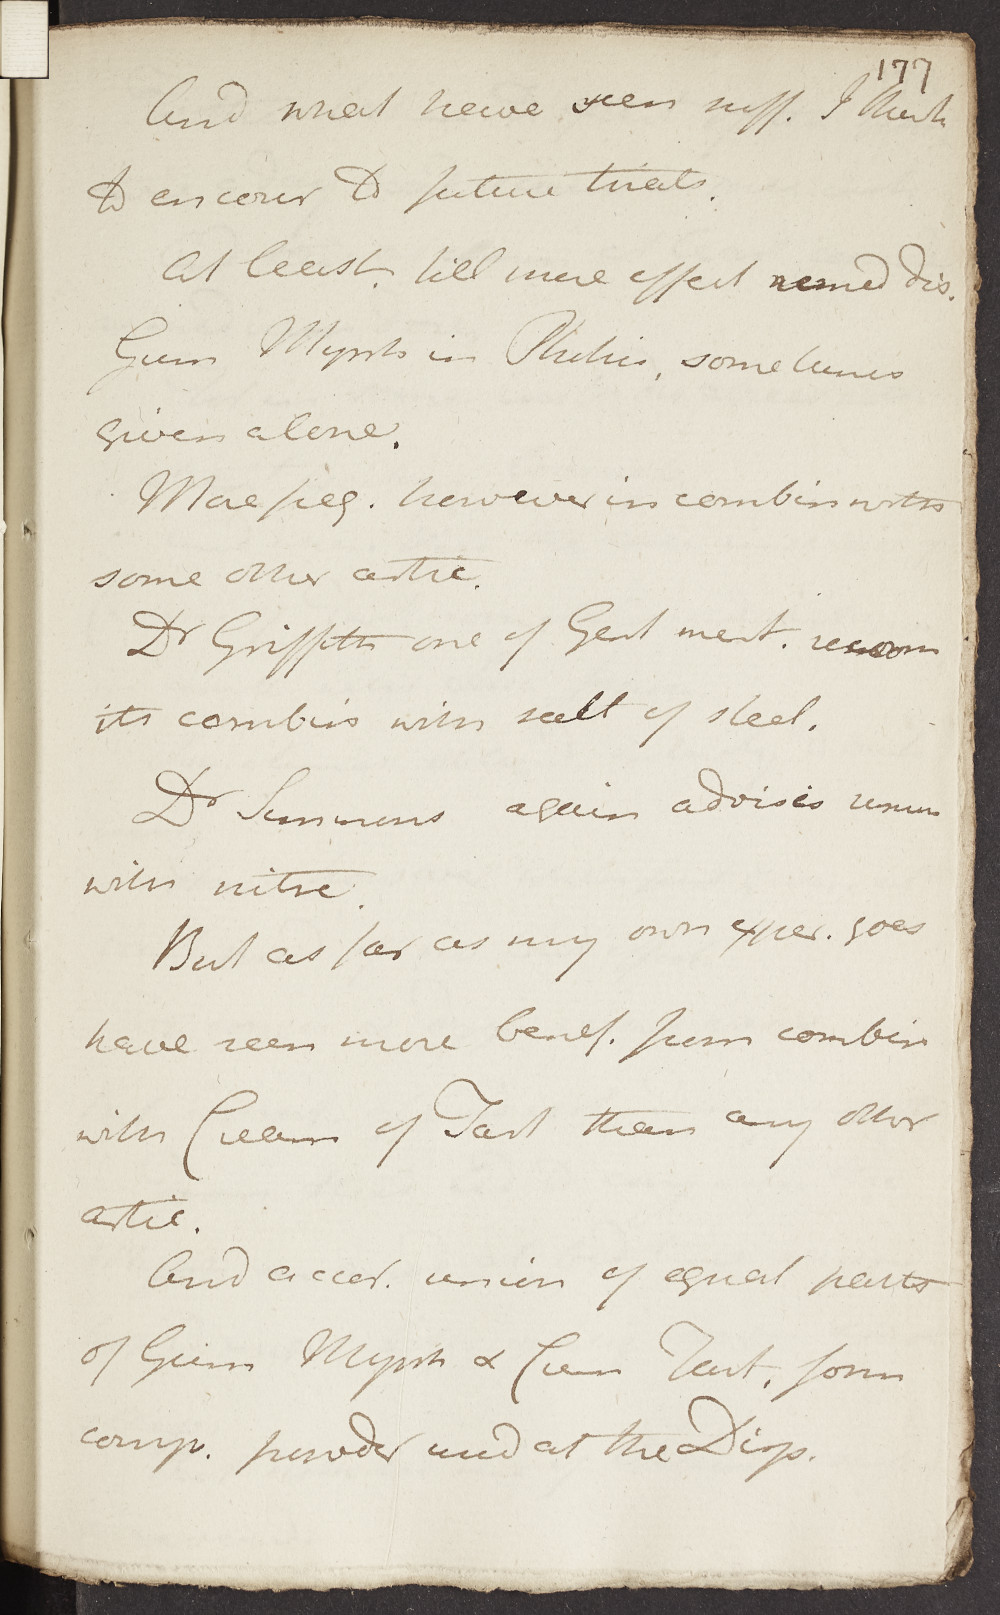 177
And what have seen suff. I think
to encour to future trials.
At least, till more effect remed dis.
Gum Myrrh in Phthis, sometimes
given alone.
More freq. however in combin with
some other artic.
Dr Griffith one of Gert ment. recom
its combin with salt of steel.
Dr Simmons again advises union
with nitre.
But as far as my own exper. goes
have seen more benef. from combin
with Cream of Tart than any other
artic.
And accor. union of equal parts
of Gum Myrrh & Crem Tart. form
comp. powder usd at the Disp.